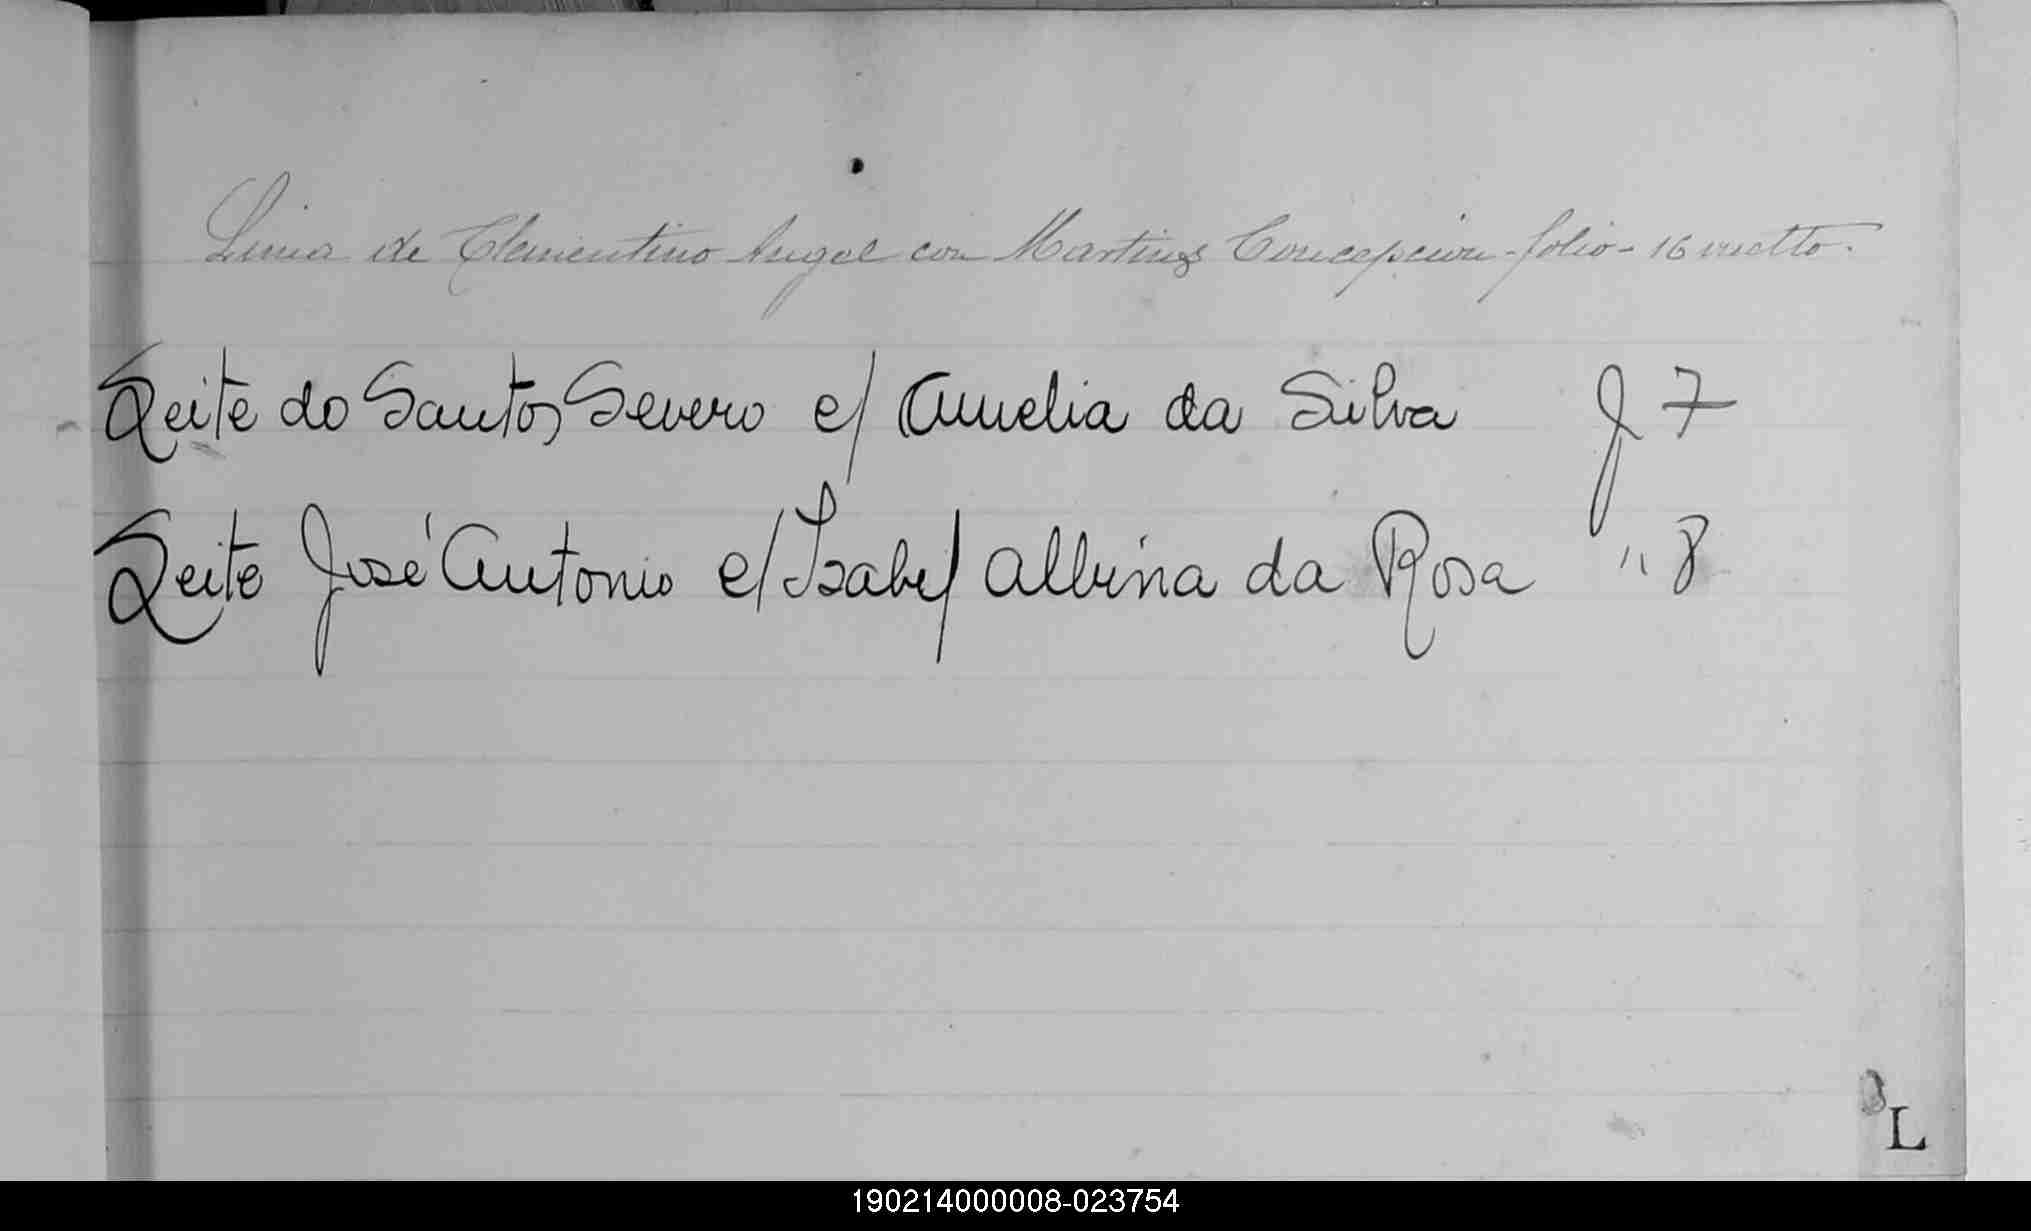 Lima de Clementino Angel con Martins Concepcion - folio - 16 vuelto.
Leite do Santos Severo c/ Amelia da Silva f 7
Leite José Antonio c/ Isabel Albina da Rosa " 8
L
190214000008-023754